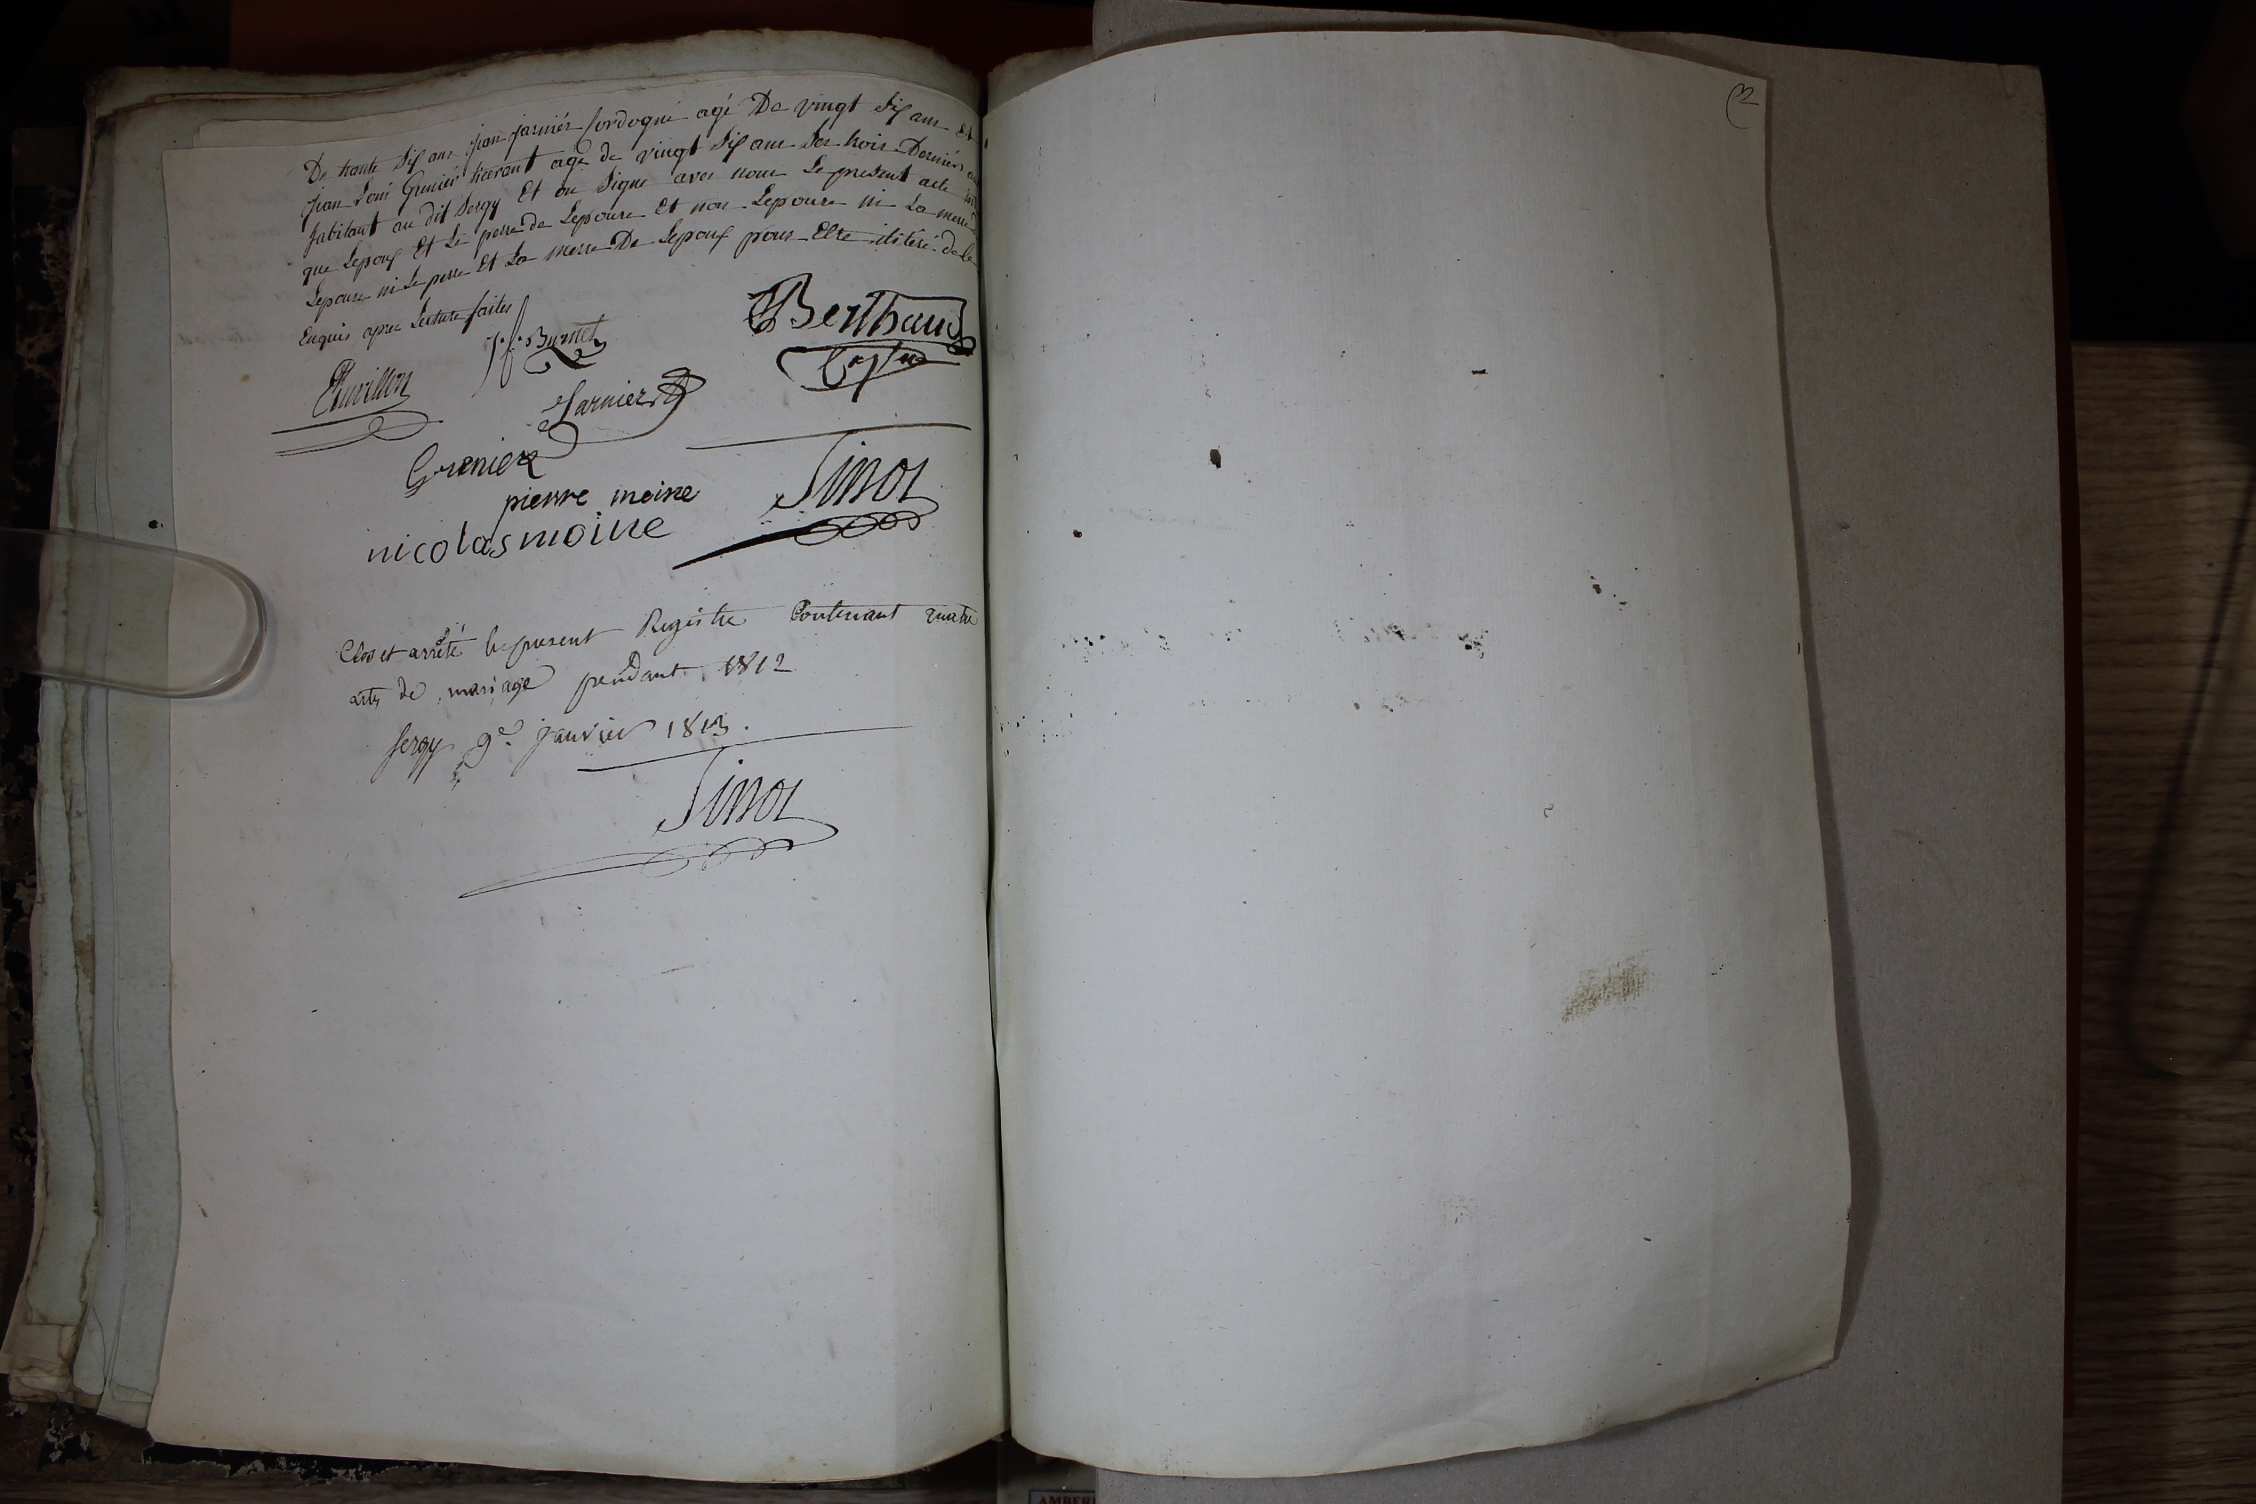 De trante Six ans jean jarnier Cordogné agé De vingt Six ans Et
jean Loui Grenier agé de vingt Six ans Les trois Dernier
habitant au dit Sergy Et on Signé avec nous Le present acte
que Lepoux Et Le perre de Lepouse Et non Lepouse ni La merre
Lepouse ni Le perre Et La merre De Lepoux pour Etre iliteré de le
Enquis apres Lecture faites
J. f. Burnet
Berthaud
Jarnier
Grenier
pierre moine
nicolas moine
Clos et arrêté le present Registre Contenant quatre
actes de mariage pendant 1812
Sergy 9e janvier 1813.
2